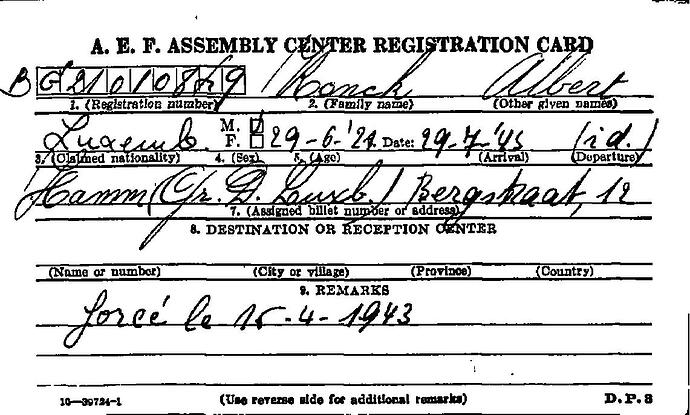 A. E. F. ASSEMBLY CENTER REGISTRATION CARD
B G 21010849 Ronck Albert
1. (Registration number) 2. (Family name) (Other given names)
Luxemb. M. F. 29-6-'24 Date: 29-7-'45 (id.)
3. (Claimed nationality) 4. (Sex) 5. (Age) (Arrival) (Departure)
Hamm, (Gr. D. Luxb.) Bergstraat, 12
7. (Assigned billet number or address)
8. DESTINATION OR RECEPTION CENTER
(Name or number) (City or village) (Province) (Country)
9. REMARKS
forcé le 15-4-1943
16—39724-1 (Use reverse side for additional remarks) D.P. 3